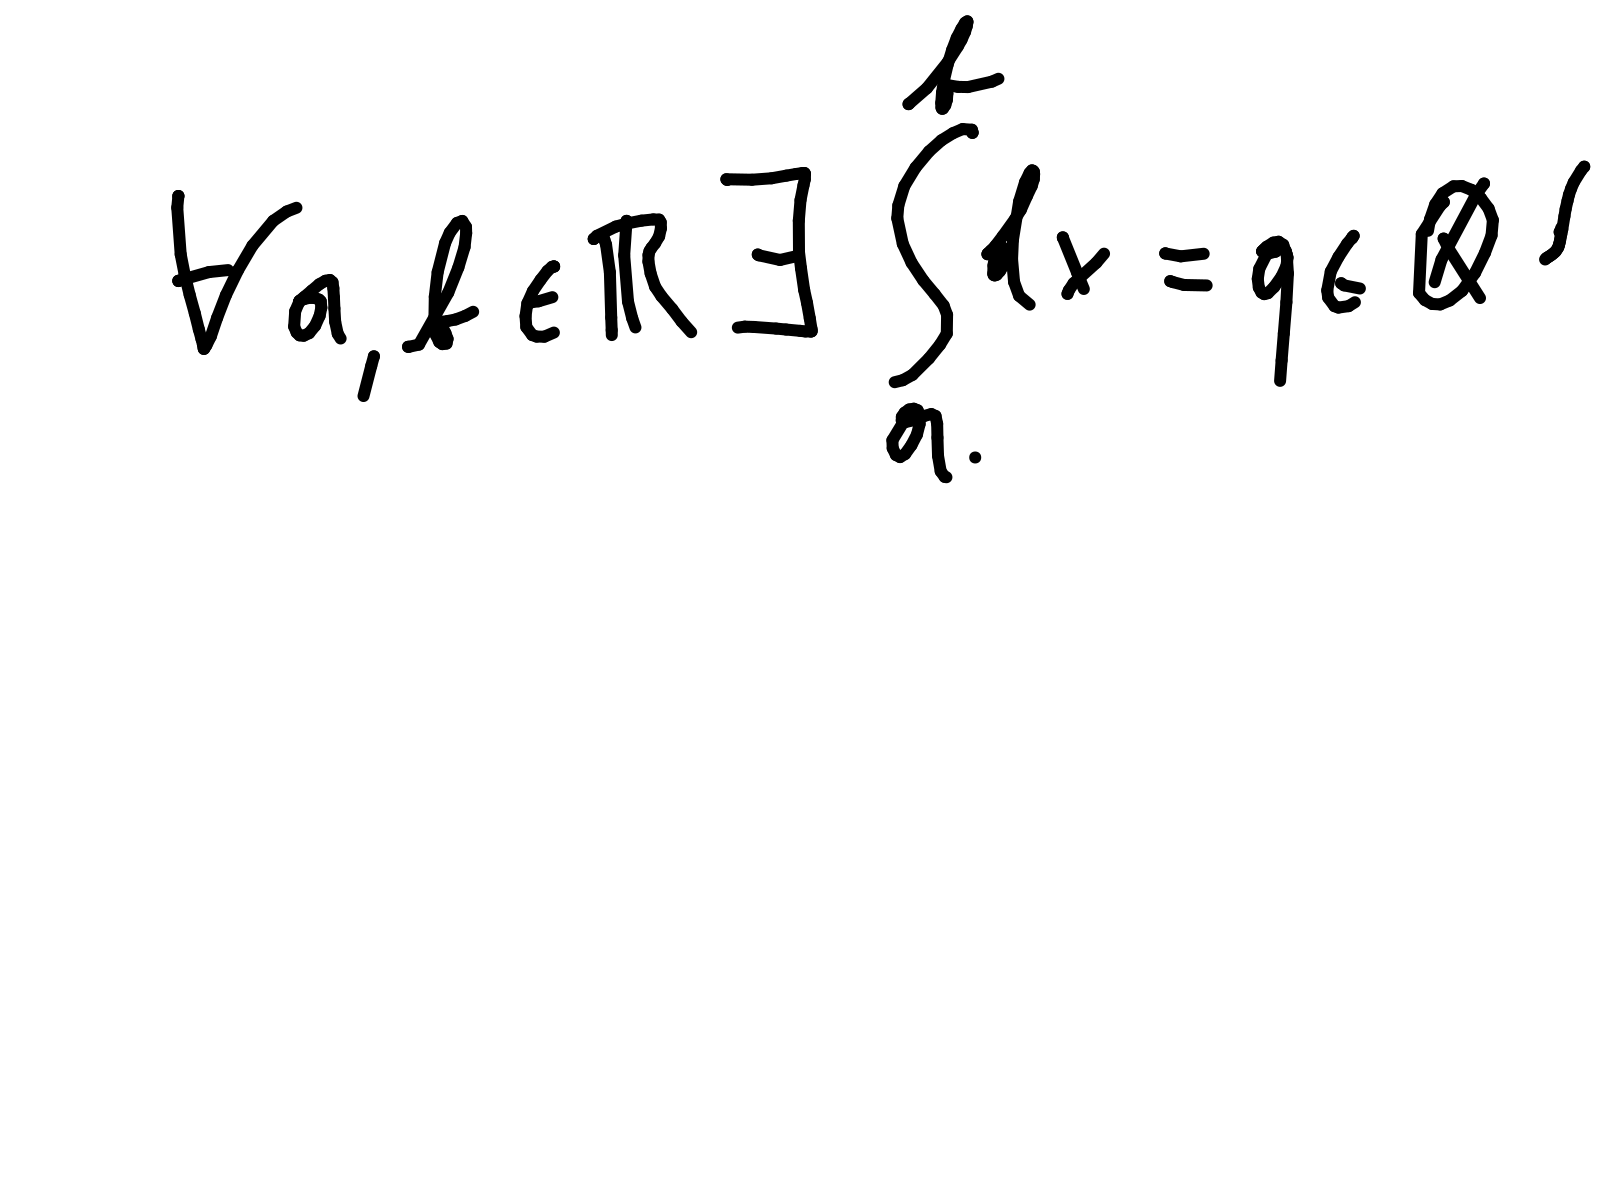 ∀ a, b ∈ ℝ ∃ ∫_a^b dx = q ∈ ℚ